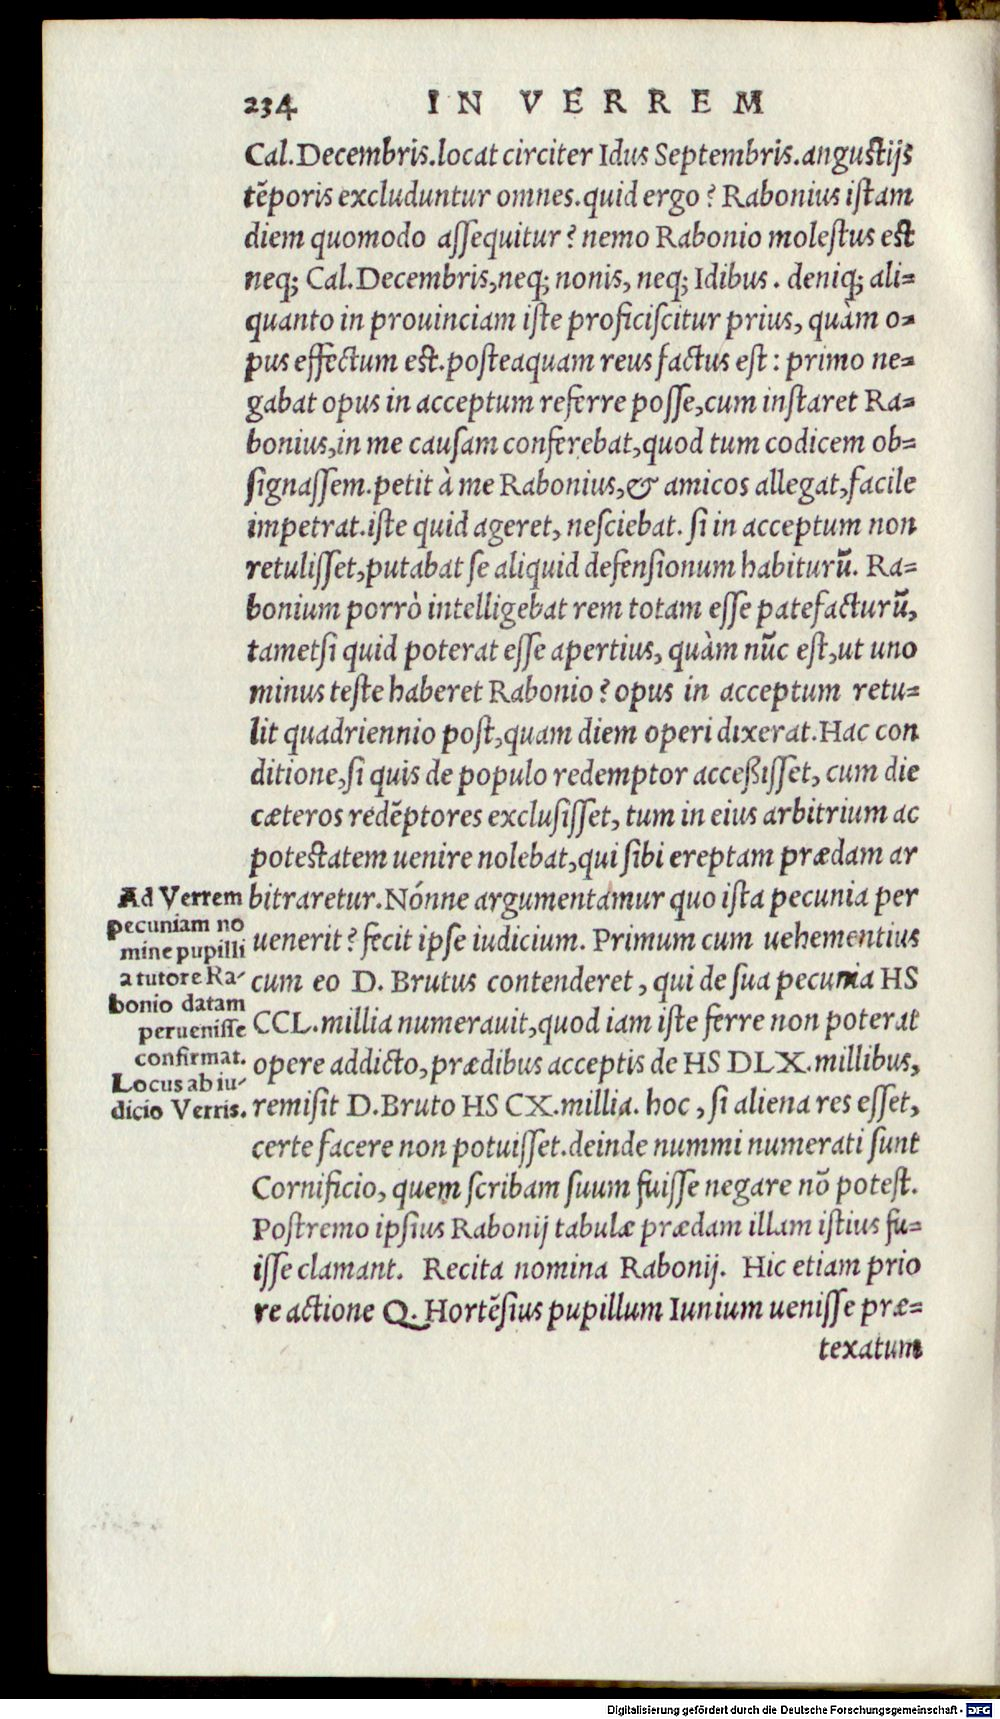 234 IN VERREM
Cal. Decembris. locat circiter Idus Septembris. angustijs
tẽporis excluduntur omnes. quid ergo? Rabonius istam
diem quomodo assequitur? nemo Rabonio molestus est
neq; Cal. Decembris, neq; nonis, neq; Idibus. deniq; ali=
quanto in prouinciam iste proficiscitur prius, quàm o=
pus effectum est. posteaquam reus factus est: primo ne=
gabat opus in acceptum referre posse, cum instaret Ra=
bonius, in me causam conferebat, quod tum codicem ob=
signassem. petit à me Rabonius, & amicos allegat, facile
impetrat. iste quid ageret, nesciebat. si in acceptum non
retulisset, putabat se aliquid defensionum habiturũ. Ra=
bonium porrò intelligebat rem totam esse patefacturũ,
tametsi quid poterat esse apertius, quàm nũc est, ut uno
minus teste haberet Rabonio? opus in acceptum retu=
lit quadriennio post, quam diem operi dixerat. Hac con
ditione, si quis de populo redemptor acceßisset, cum die
cæteros redẽptores exclusisset, tum in eius arbitrium ac
potestatem uenire nolebat, qui sibi ereptam prædam ar
bitraretur. Nónne argumentamur quo ista pecunia per
uenerit? fecit ipse iudicium. Primum cum uehementius
cum eo D. Brutus contenderet, qui de sua pecunia HS
CCL. millia numerauit, quod iam iste ferre non poterat
opere addicto, prædibus acceptis de HS DLX. millibus,
remisit D. Bruto HS CX. millia. hoc, si aliena res esset,
certe facere non potuisset. deinde nummi numerati sunt
Cornificio, quem scribam suum fuisse negare nõ potest.
Postremo ipsius Rabonij tabulæ prædam illam istius fu=
isse clamant. Recita nomina Rabonij. Hic etiam prio
re actione Q. Hortẽsius pupillum Iunium uenisse præ=
texatum
Ad Verrem
pecuniam no
mine pupilli
a tutore Ra-
bonio datam
peruenisse
confirmat.
Locus ab iu-
dicio Verris.
Digitalisierung gefördert durch die Deutsche Forschungsgemeinschaft - DFG